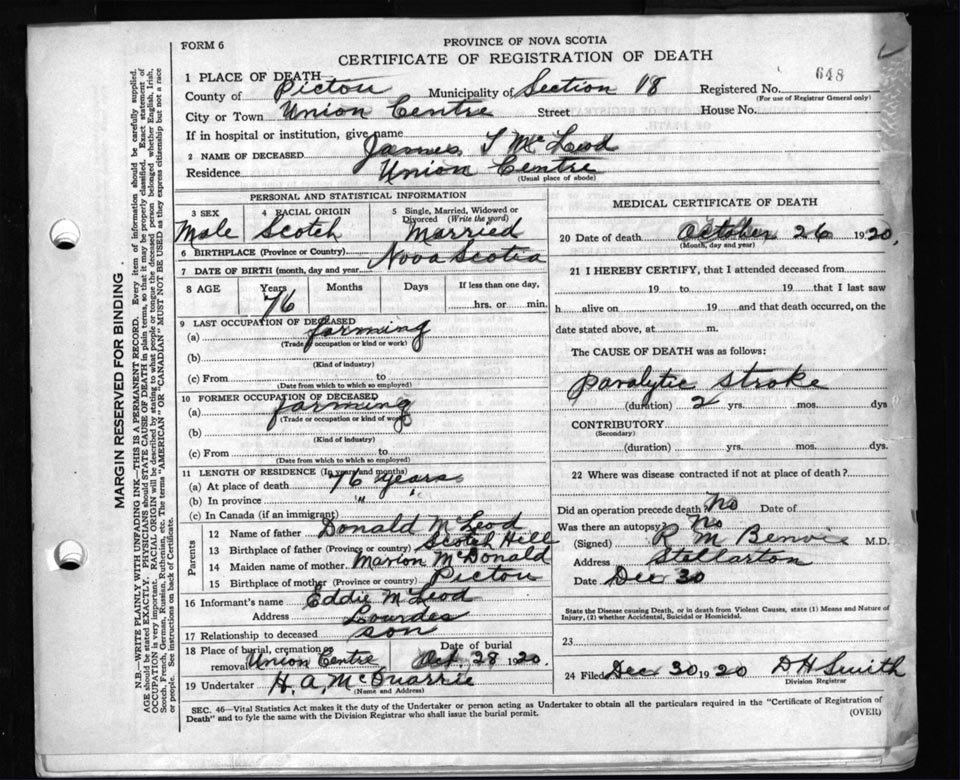 FORM 6
PROVINCE OF NOVA SCOTIA
CERTIFICATE OF REGISTRATION OF DEATH
648
1 PLACE OF DEATH
County of Pictou Municipality of Section 18 Registered No.
(For use of Registrar General only)
City or Town Union Centre Street House No.
If in hospital or institution, give name
2 NAME OF DECEASED James T McLeod
Residence Union Centre
(Usual place of abode)
PERSONAL AND STATISTICAL INFORMATION
3 SEX 4 RACIAL ORIGIN 5 Single, Married, Widowed or Divorced (Write the word)
Male Scotch Married
6 BIRTHPLACE (Province or Country) Nova Scotia
7 DATE OF BIRTH (month, day and year)
8 AGE Years Months Days If less than one day,
76 hrs. or min.
9 LAST OCCUPATION OF DECEASED
(a) farming
(Trade, occupation or kind of work)
(b)
(Kind of industry)
(c) From to
(Date from which to which so employed)
10 FORMER OCCUPATION OF DECEASED
(a) farming
(Trade, occupation or kind of work)
(b)
(Kind of industry)
(c) From to
(Date from which to which so employed)
11 LENGTH OF RESIDENCE (In years and months)
(a) At place of death 76 years
(b) In province " "
(c) In Canada (if an immigrant)
Parents
12 Name of father Donald McLeod
13 Birthplace of father (Province or country) Scotch Hill
14 Maiden name of mother Marion McDonald
15 Birthplace of mother (Province or country) Pictou
16 Informant's name Eddie McLeod
Address Lourdes
17 Relationship to deceased son
18 Place of burial, cremation or removal Union Centre Date of burial Oct. 28 1920.
19 Undertaker H. A. McQuarrie
(Name and Address)
MEDICAL CERTIFICATE OF DEATH
20 Date of death October 26 1920,
(Month, day and year)
21 I HEREBY CERTIFY, that I attended deceased from
19 to 19 that I last saw
h alive on 19 and that death occurred, on the
date stated above, at m.
The CAUSE OF DEATH was as follows:
paralytic stroke
(duration) 2 yrs. mos. dys
CONTRIBUTORY
(Secondary)
(duration) yrs. mos. dys.
22 Where was disease contracted if not at place of death?
Did an operation precede death? No Date of
Was there an autopsy? No
(Signed) R M Benvie M.D.
Address Stellarton
Date Dec 30
State the Disease causing Death, or in death from Violent Causes, state (1) Means and Nature of
Injury, (2) whether Accidental, Suicidal or Homicidal.
23
24 Filed Dec 30 1920 D H Smith
Division Registrar
SEC. 46—Vital Statistics Act makes it the duty of the Undertaker or person acting as Undertaker to obtain all the particulars required in the "Certificate of Registration of
Death" and to fyle the same with the Division Registrar who shall issue the burial permit.
(OVER)
MARGIN RESERVED FOR BINDING
N.B.—WRITE PLAINLY WITH UNFADING INK—THIS IS A PERMANENT RECORD. Every item of information should be carefully supplied.
AGE should be stated EXACTLY. PHYSICIANS should STATE CAUSE OF DEATH in plain terms, so that it may be properly classified. Exact statement of
OCCUPATION is very important. RACIAL ORIGIN will be described by stating to what people or tongue the deceased person belonged whether English, Irish,
Scotch, French, German, Russian, Ruthenian, etc. The terms "AMERICAN" OR "CANADIAN" MUST NOT BE USED as they express citizenship but not a race
or people. See instructions on back of Certificate.